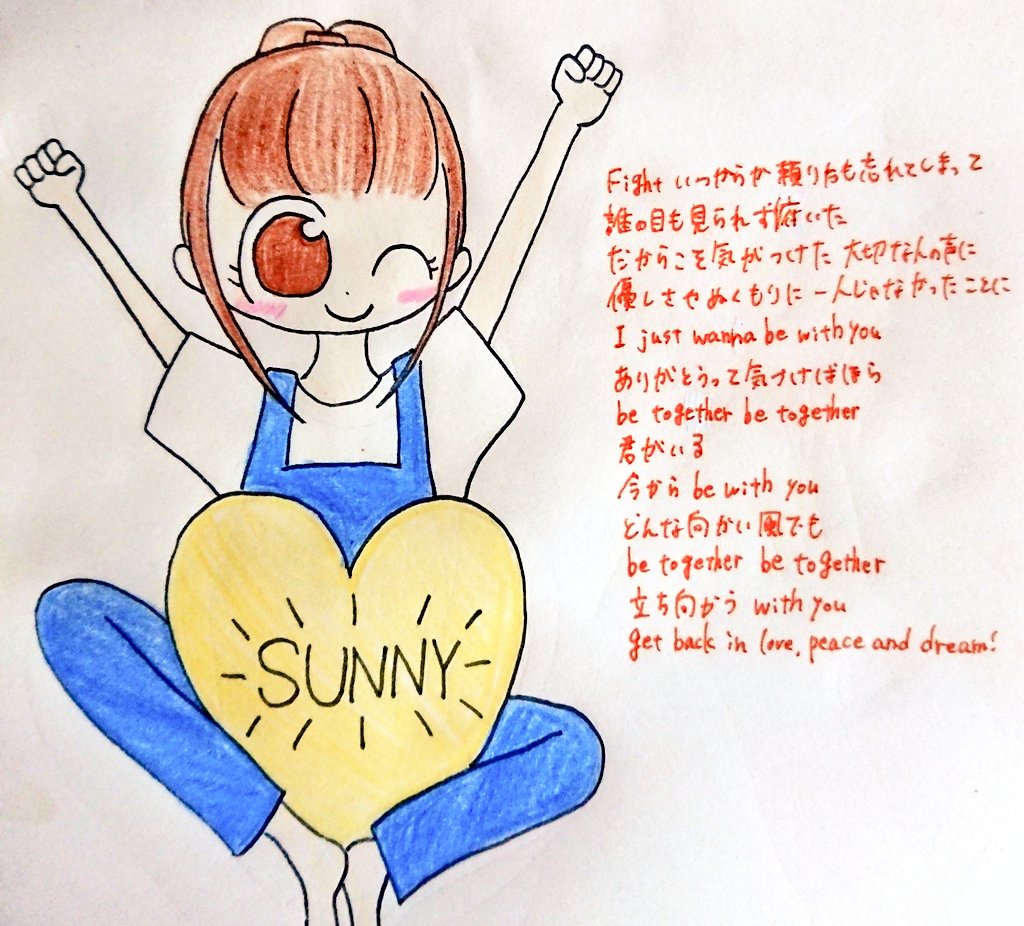 Fight いつからか頼り方も忘れてしまって
誰の目も見られず俯いた
だからこそ気がつけた 大切な人の声に
優しさやぬくもりに 一人じゃなかったことに
I just wanna be with you
ありがとうって気づけばほら
be together be together
君がいる
今から be with you
どんな向かい風でも
be together be together
立ち向かう with you
get back in love, peace and dream!
SUNNY